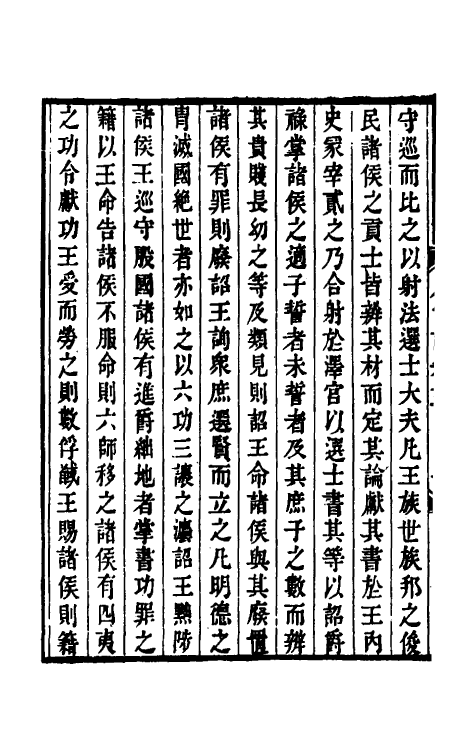 守巡而比之以射法選士大夫凡王族世族邦之俊
民諸侯之貢士皆辨其材而定其論獻其書於王內
史冢宰貳之乃合射於澤宮以選士書其等以詔爵
祿掌諸侯之適子誓者未誓者及其庶子之數而辨
其貴賤長幼之等及類見則詔王命諸侯與其廢置
諸侯有罪則廢詔王詢衆庶選賢而立之凡明德之
胄滅國絕世者亦如之以六功三讓之灋詔王黜陟
諸侯王巡守殷國諸侯有進爵絀地者掌書功罪之
籍以王命告諸侯不服命則六師移之諸侯有四夷
之功令獻功王受而勞之則數俘馘王賜諸侯則籍